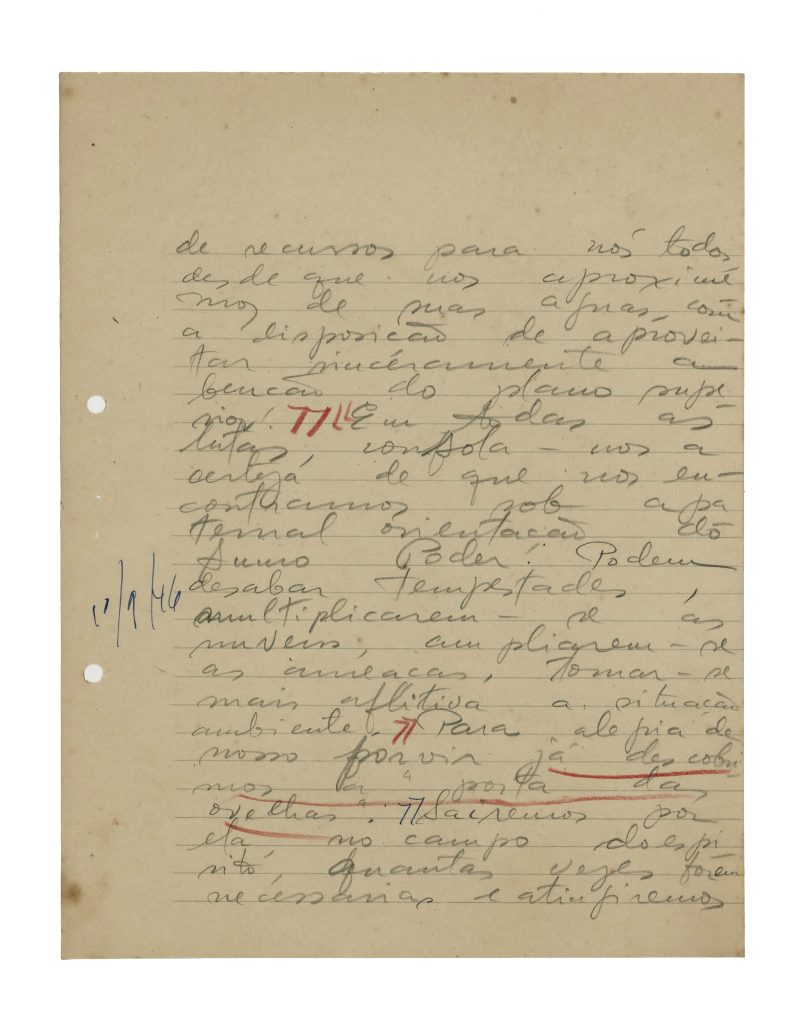 de recursos para nós todos,
desde que nos aproximé
mos de suas aguas, com
a disposição de aprovei-
tar sincéramente a
benção do plano supe
rior! Em todas as
lutas, consola-nos a
certeza de que nos en-
contramos sob a pa
ternal orientação do
Sumo Poder! Podem
desabar tempestades,
multiplicarem-se as
nuvens, ampliarem-se
as ameaças, tornar-se
mais aflitiva a situação
ambiente. Para alegria de
nosso porvir já descobri
mos a "porta das
ovelhas". Sairemos por
ela, no campo do espi
rito, quantas vezes forem
necessarias e atingiremos
11/9/46